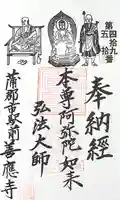 第四拾九番
第五拾番
奉納經
本尊阿弥陀如来
弘法大師
蒲郡市駅前
善應寺